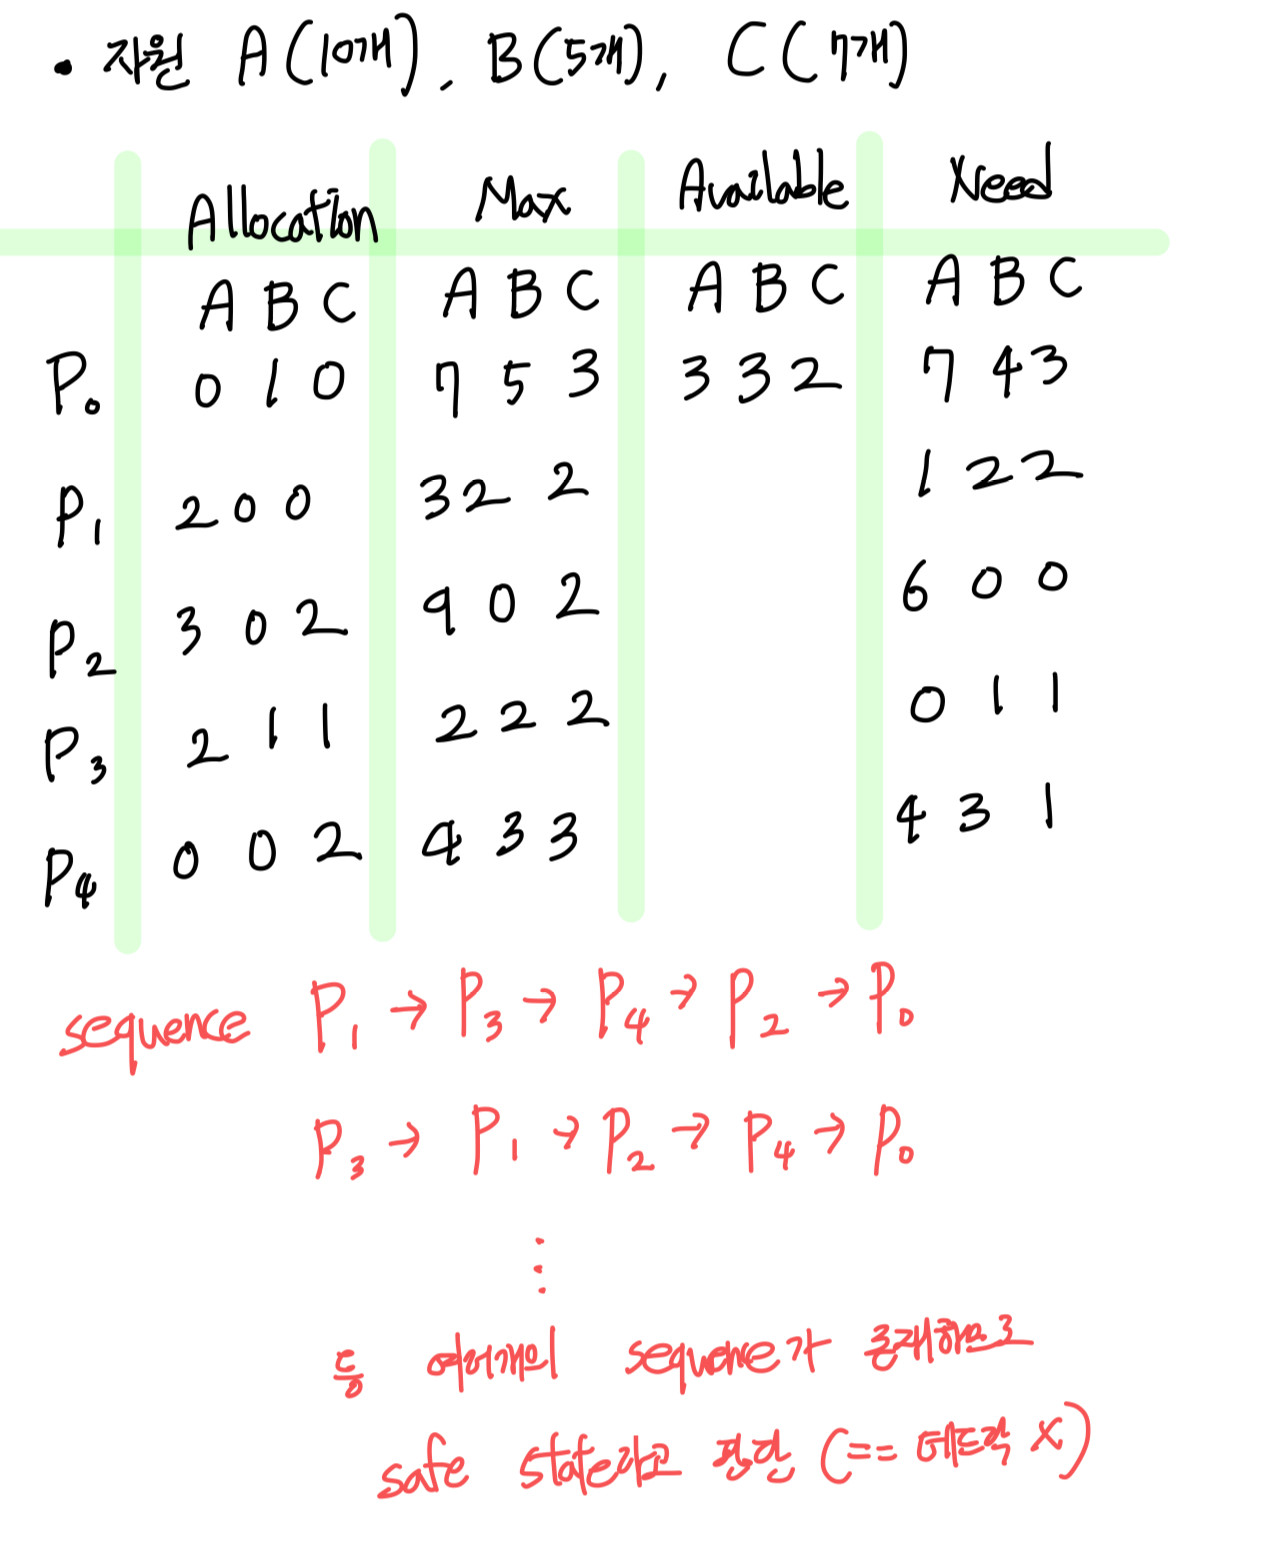 • 자원 A(10개), B(5개), C(7개)
Allocation Max Available Need
A B C A B C A B C A B C
P0 0 1 0 7 5 3 3 3 2 7 4 3
P1 2 0 0 3 2 2 1 2 2
P2 3 0 2 9 0 2 6 0 0
P3 2 1 1 2 2 2 0 1 1
P4 0 0 2 4 3 3 4 3 1
sequence P1 → P3 → P4 → P2 → P0
P3 → P1 → P2 → P4 → P0
⋮
등 여러개의 sequence가 존재하므로
safe state라고 판단 (== 데드락 X)